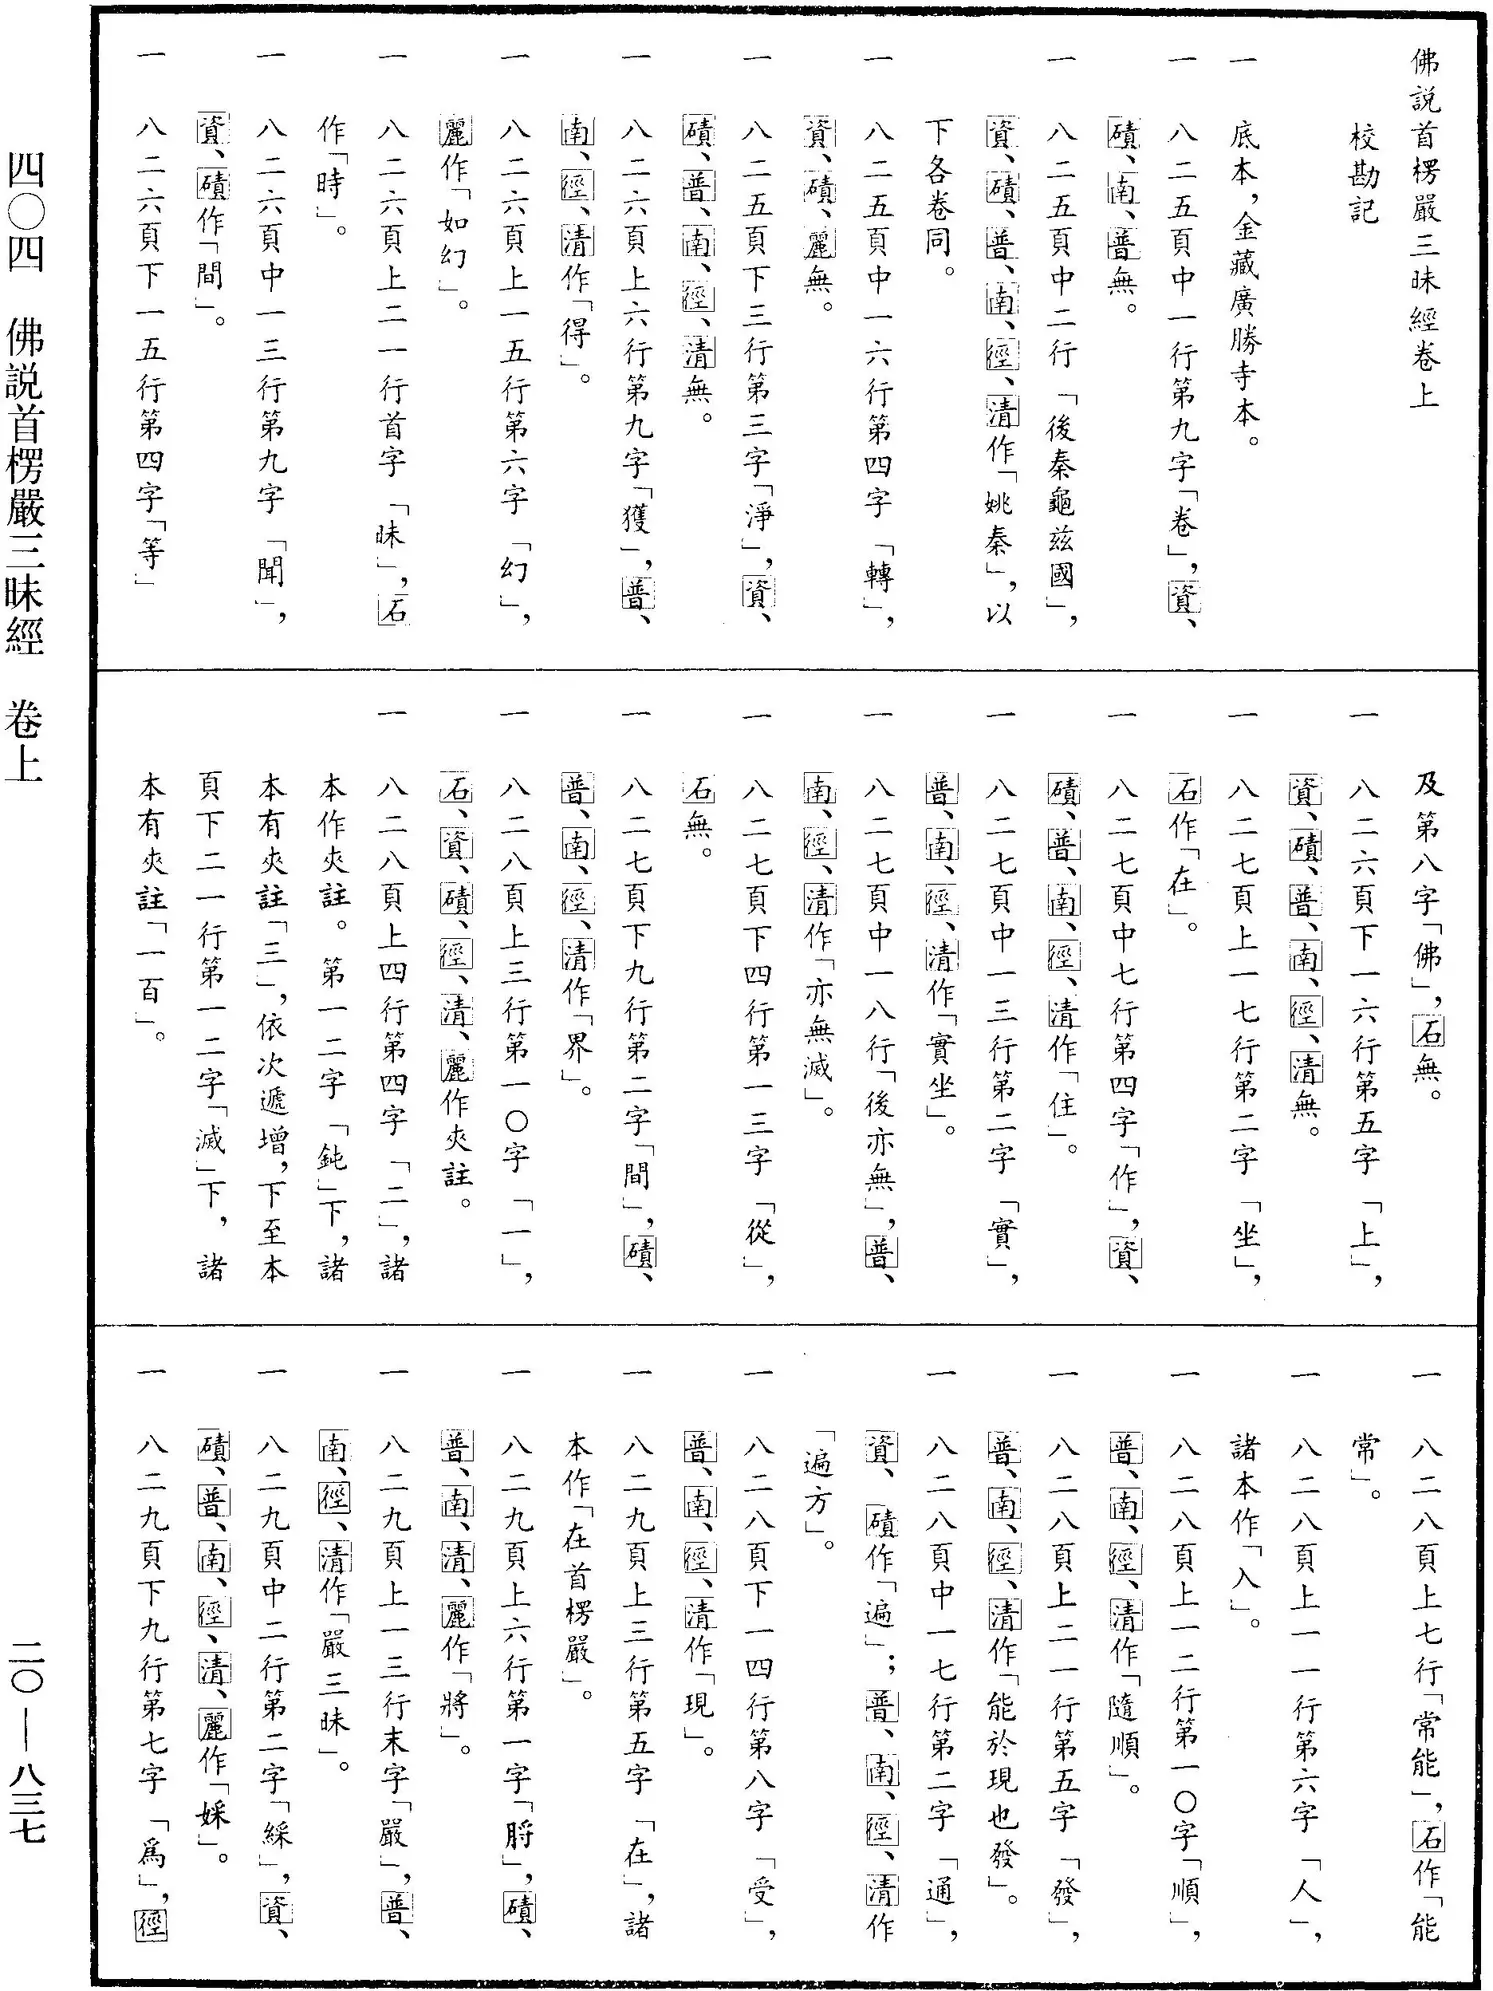 佛説首楞嚴三昧經卷上
校勘記
一 底本，金藏廣勝寺本。
一 八二五頁中一行第九字「卷」，資、
磧、南、普無。
一 八二五頁中二行「後秦龜兹國」，
資、磧、普、南、徑、清作「姚秦」，以
下各卷同。
一 八二五頁中一六行第四字「轉」，
資、磧、麗無。
一 八二五頁下三行第三字「淨」，資、
磧、普、南、徑、清無。
一 八二六頁上六行第九字「獲」，普、
南、徑、清作「得」。
一 八二六頁上一五行第六字「幻」，
麗作「如幻」。
一 八二六頁上二一行首字「昧」，石
作「時」。
一 八二六頁中一三行第九字「聞」，
資、磧作「間」。
一 八二六頁下一五行第四字「等」
及第八字「佛」，石無。
一 八二六頁下一六行第五字「上」，
資、磧、普、南、徑、清無。
一 八二七頁上一七行第二字「坐」，
石作「在」。
一 八二七頁中七行第四字「作」，資、
磧、普、南、徑、清作「住」。
一 八二七頁中一三行第二字「實」，
普、南、徑、清作「實坐」。
一 八二七頁中一八行「後亦無」，普、
南、徑、清作「亦無滅」。
一 八二七頁下四行第一三字「從」，
石無。
一 八二七頁下九行第二字「間」，磧、
普、南、徑、清作「界」。
一 八二八頁上三行第一〇字「一」，
石、資、磧、徑、清、麗作夾註。
一 八二八頁上四行第四字「二」，諸
本作夾註。第一二字「鈍」下，諸
本有夾註「三」，依次遞增，下至本
頁下二一行第一二字「滅」下，諸
本有夾註「一百」。
一 八二八頁上七行「常能」，石作「能
常」。
一 八二八頁上一一行第六字「人」，
諸本作「入」。
一 八二八頁上一二行第一〇字「順」，
普、南、徑、清作「隨順」。
一 八二八頁上二一行第五字「發」，
普、南、徑、清作「能於現也發」。
一 八二八頁中一七行第二字「通」，
資、磧作「遍」；普、南、徑、清作
「遍方」。
一 八二八頁下一四行第八字「受」，
普、南、徑、清作「現」。
一 八二九頁上三行第五字「在」，諸
本作「在首楞嚴」。
一 八二九頁上六行第一字「將」，磧、
普、南、清、麗作「將」。
一 八二九頁上一三行末字「嚴」，普、
南、徑、清作「嚴三昧」。
一 八二九頁中二行第二字「綵」，資、
磧、普、南、徑、清、麗作「婇」。
一 八二九頁下九行第七字「爲」，徑
四〇四 佛説首楞嚴三昧經 卷上
二〇—八三七